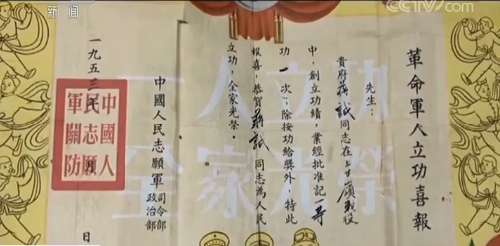 新闻
CCTV.com
革命軍人立功喜報
先生：
貴府蔣誠同志在上甘嶺戰役
中，創立功績，業經批准記一等
功一次；除按功給獎外，特此
報喜，恭賀蔣誠同志為人民
立功，全家光榮。
中國人民志願軍
司令部
政治部
一九五三年
日
中國人
民志願
軍關防
一人立功
全家光榮